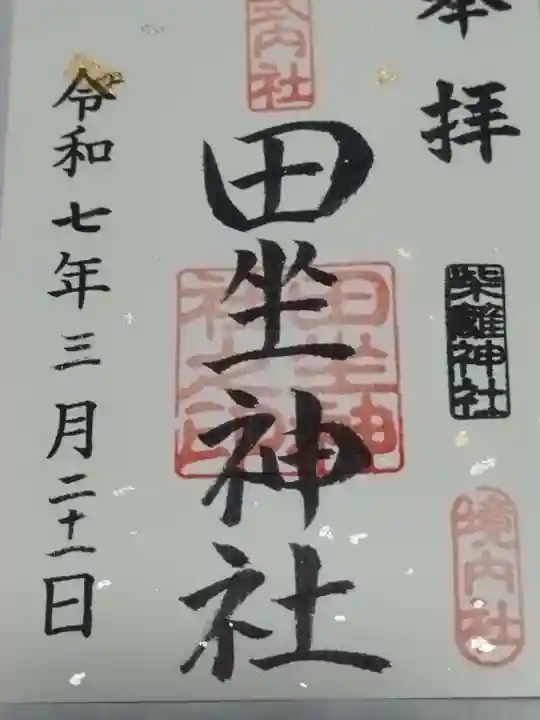 奉拝
柴籬神社
境内社
式内社
田坐神社
田坐神社之印
令和七年三月二十一日